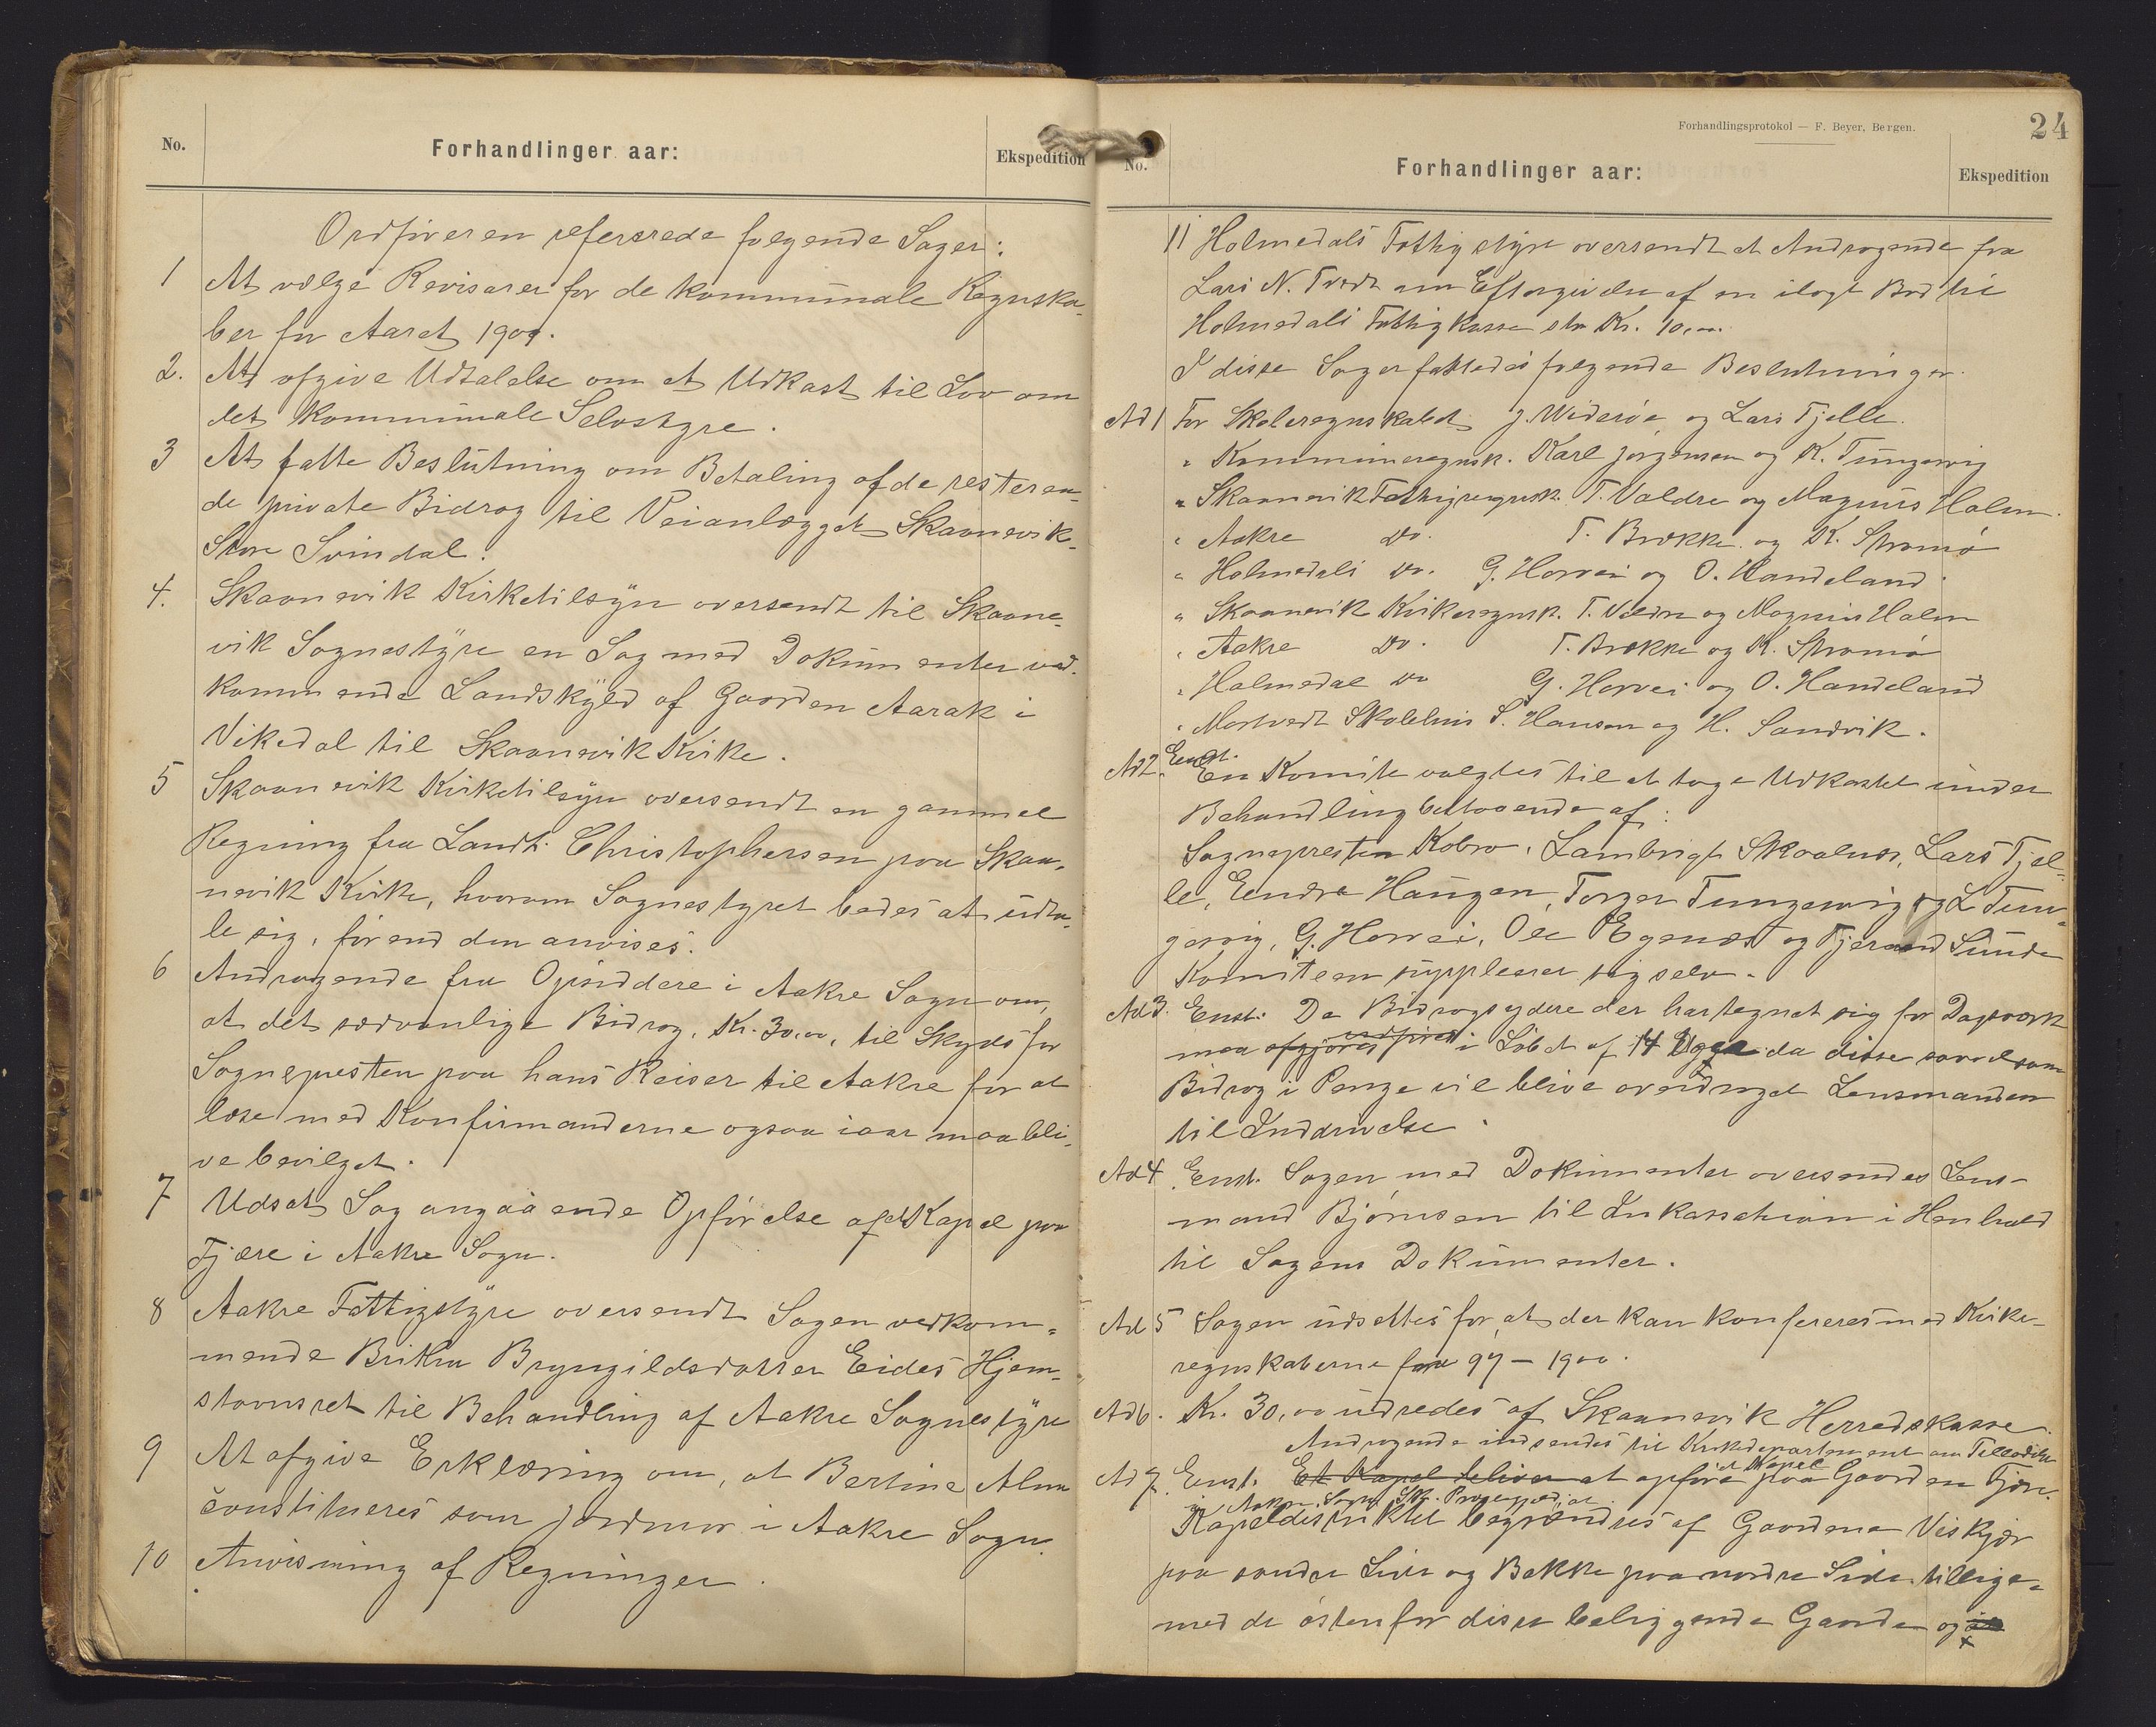 No.
Forhandlinger aar:
Ekspedition
Ordføreren refererede følgende Sager:
1 At vælge Revisorer for de kommunale Regnska-
ber for Aaret 1900.
2. At afgive Udtalelse om et Udkast til Lov om
det kommunale Selvstyre.
3 At fatte Beslutning om Betaling af de resteren-
de private Bidrag til Veianlægget Skaanevik-
Store Svindal.
4. Skaanevik Kirketilsyn oversendt til Skaane-
vik Sognestyre en Sag med Dokumenter ved-
kommende Landskyld af Gaarden Aarak i
Vikedal til Skaanevik Kirke.
5 Skaanevik Kirketilsyn oversendt en gammel
Regning fra Landh. Christophersen paa Skaa-
nevik Kirke, hvorom Sognestyret bedes at udta-
le sig, førend den anvises.
6 Andragende fra Opsiddere i Aakre Sogn om,
at det sædvanlige Bidrag, Kr. 30,00, til Skyds for
Sognepresten paa hans Reiser til Aakre for at
læse med Konfirmanderne ogsaa iaar maa bli-
ve bevilget.
7 Udsat Sag angaaende Opførelse af et Kapel paa
Fjære i Aakre Sogn.
8 Aakre Fattigstyre oversendt Sagen vedkom-
mende Brikva Bryngildsdatter Eides Hjem-
stavnsret til Behandling af Aakre Sognestyre
9 At afgive Erklæring om, at Bertine Alne
constitueres som Jordmor i Aakre Sogn.
10 Anvisning af Regninger.
Forhandlingsprotokol — F. Beyer, Bergen.
24
No.
Forhandlinger aar:
Ekspedition
11 Holmedals Fattigstyre oversendt et Andragende fra
Lars N. Tvedt om Eftergivelse af en ilagt Bod til
Holmedals Fattigkasse stor Kr. 10,00.
I disse Sager fattedes følgende Beslutninger.
Ad 1 For Skoleregnskabet J. Widerøe og Lars Fjelle.
" Kommuneregnsk. Karl Jørgensen og K. Tungesvig
" Skaanevik Fattigregnsk. T. Valdre og Magnus Halm.
" Aakre Do. T. Brække og K. Strømø
" Holmedals Do. G. Horvei og O. Handeland.
" Skaanevik Kirkeregnsk. T. Valdre og Magnus Halm
" Aakre Do. T. Brække og K. Strømø
" Holmedal Do G. Horvei og O. Handeland
" Mortvedt Skolehus S. Hansen og H. Sandvik.
Ad 2. Enst. En Komite valgtes til at tage Udkastet under
Behandling bestaaende af:
Sognepresten Kobro, Lambrigt Skaalnes, Lars Fjel-
le, Eendre Haugen, Torger Tungesvig og L. Tun-
gesvig, G. Horvei, Ole Egenæs og Tjerand Sunde
Komiteen supplerer sig selv.
Ad 3. Enst. De Bidragsydere der har tegnet sig for Dagsværk
maa afgjøres udføres i Løbet af 14 Dage da disse saavelsom
Bidrag i Penge vil blive overdraget Lensmanden
til Inddrivelse.
Ad 4. Enst. Sagen med Dokumenter oversendes Lens-
mand Bjørnsen til Inkassation i Henhold
til Sagens Dokumenter.
Ad 5 Sagen udsættes for, at der kan konfereres med Kirke-
regnskaberne fra 97 – 1900.
Ad 6. Kr. 30,00 udredes af Skaanevik Herredskasse.
Andragende indsendes til Kirkedepartement om Tilladelse
Ad 7. Enst. Et Kapel bliver at opføre et Kapel paa Gaarden Fjære
i Aakre Sogn, Sk. Prestegjeld, at
Kapeldistriktet begrændses af Gaardene Viskjær
paa søndre Side og Bakke paa nordre Side tillige-
med de østenfor disse beliggende Gaarde og